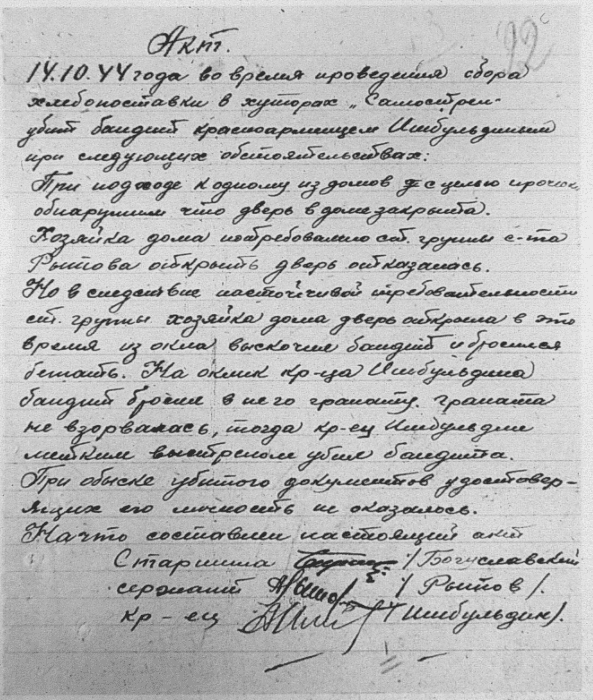 92
Акт.
14.10.44 года во время проведения сбора
хлебопоставки в хуторах „Самострел-
убит бандит красноармейцем Ишбульдиным
при следующих обстоятельствах:
При подходе к одному из домов с целью
обнаружим что дверь в доме закрыта.
Хозяйка дома потребованию ст. группы с-та
Рытова открыть дверь отказалась.
Но в следствие настойчивой требовательности
ст. группы хозяйка дома дверь открыла в это
время из окна выскочил бандит и бросился
бежать. На оклик кр-ца Ишбульдина
бандит бросил в него гранату. граната
не взорвалась, тогда кр-ец Ишбульдин
метким выстрелом убил бандита.
При обыске убитого документов удостовер-
ящих его личность не оказалось.
На что составлен настоящий акт
Старшина / Богуславский
сержант / Рытов /.
кр-ец / Ишбульдин /.